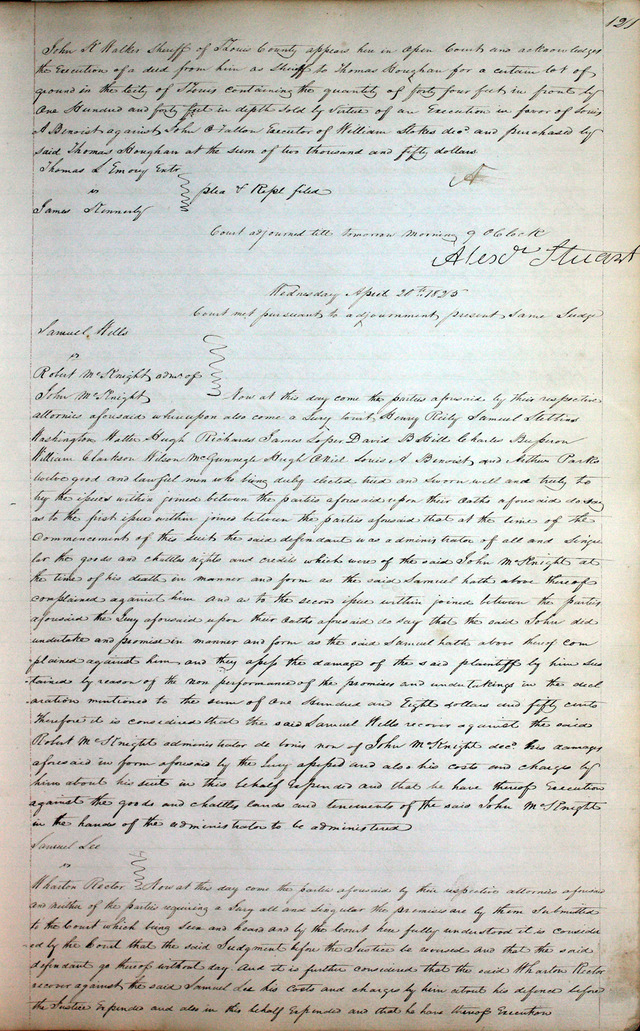 121
John K Walker Sheriff of St Louis County appears here in open Court and acknowledges
the Execution of a deed from him as Sheriff to Thomas Houghan for a certain lot of
ground in the City of St Louis containing the quantity of forty four feet in front by
One Hundred and forty feet in depth Sold by virtue of an Execution in favor of Louis
A Benoist against John O Fallon Executor of William Stokes decd and purchased by
said Thomas Houghan at the sum of two thousand and fifty dollars
Thomas L Emory Extr
vs
plea & Repl filed
James Kennerly
Court adjourned till tomorrow morning 9 OClock
Alexdr Stuart
Wednesday April 20th 1825
Court met pursuant to adjournment present Same Judge
Samuel Wells
vs
Robert McKnight admr of
John McKnight
Now at this day come the parties aforesaid by their respective
attornies aforesaid whereupon also come a Jury towit Henry Reily Samuel Stebbins
Washington Walter Hugh Richards James Loper David B Hill Charles
William Clarkson Wilson McGunnegle Hugh ONeil Louis A Benoist and Arthur Parks
twelve good and lawful men who being duly elected tried and sworn well and truly to
try the issues within joined between the parties aforesaid upon their Oaths aforesaid do say
as to the first issue within joined between the parties aforesaid that at the time of the
Commencement of this suit the said defendant was administrator of all and Singu
lar the goods and chattles rights and credits which were of the said John McKnight at
the time of his death in manner and form as the said Samuel hath above thereof
complained against him and as to the second issue within joined between the parties
aforesaid the Jury aforesaid upon their Oaths aforesaid do say that the said John did
undertake and promise in manner and form as the said Samuel hath above thereof com
plained against him and they assess the damage of the said plaintiff by him sus
tained by reason of the non performance of the promises and undertakings in the decl
aration mentioned to the sum of One Hundred and Eight dollars and fifty cents
Therefore it is considered that the said Samuel Wells recover against the said
Robert McKnight administrator de bonis non of John McKnight decd his damages
aforesaid in form aforesaid by the Jury assessed and also his costs and charges by
him about his suit in this behalf expended and that he have thereof Execution
against the goods and chattles lands and tenements of the said John McKnight
in the hands of the administrator to be administered
Samuel Lee
vs
Wharton Rector Now at this day come the parties aforesaid by their respective attornies aforesaid
and neither of the parties requiring a Jury all and singular the premises are by them Submitted
to the Court which being seen and heard and by the Court here fully understood it is consider
ed by the Court that the said Judgment before the Justice be reversed and that the said
defendant go thereof without day. And it is further considered that the said Wharton Rector
recover against the said Samuel Lee his costs and charges by him about his defence before
the Justice Expended and also in this behalf Expended and that he have thereof Execution